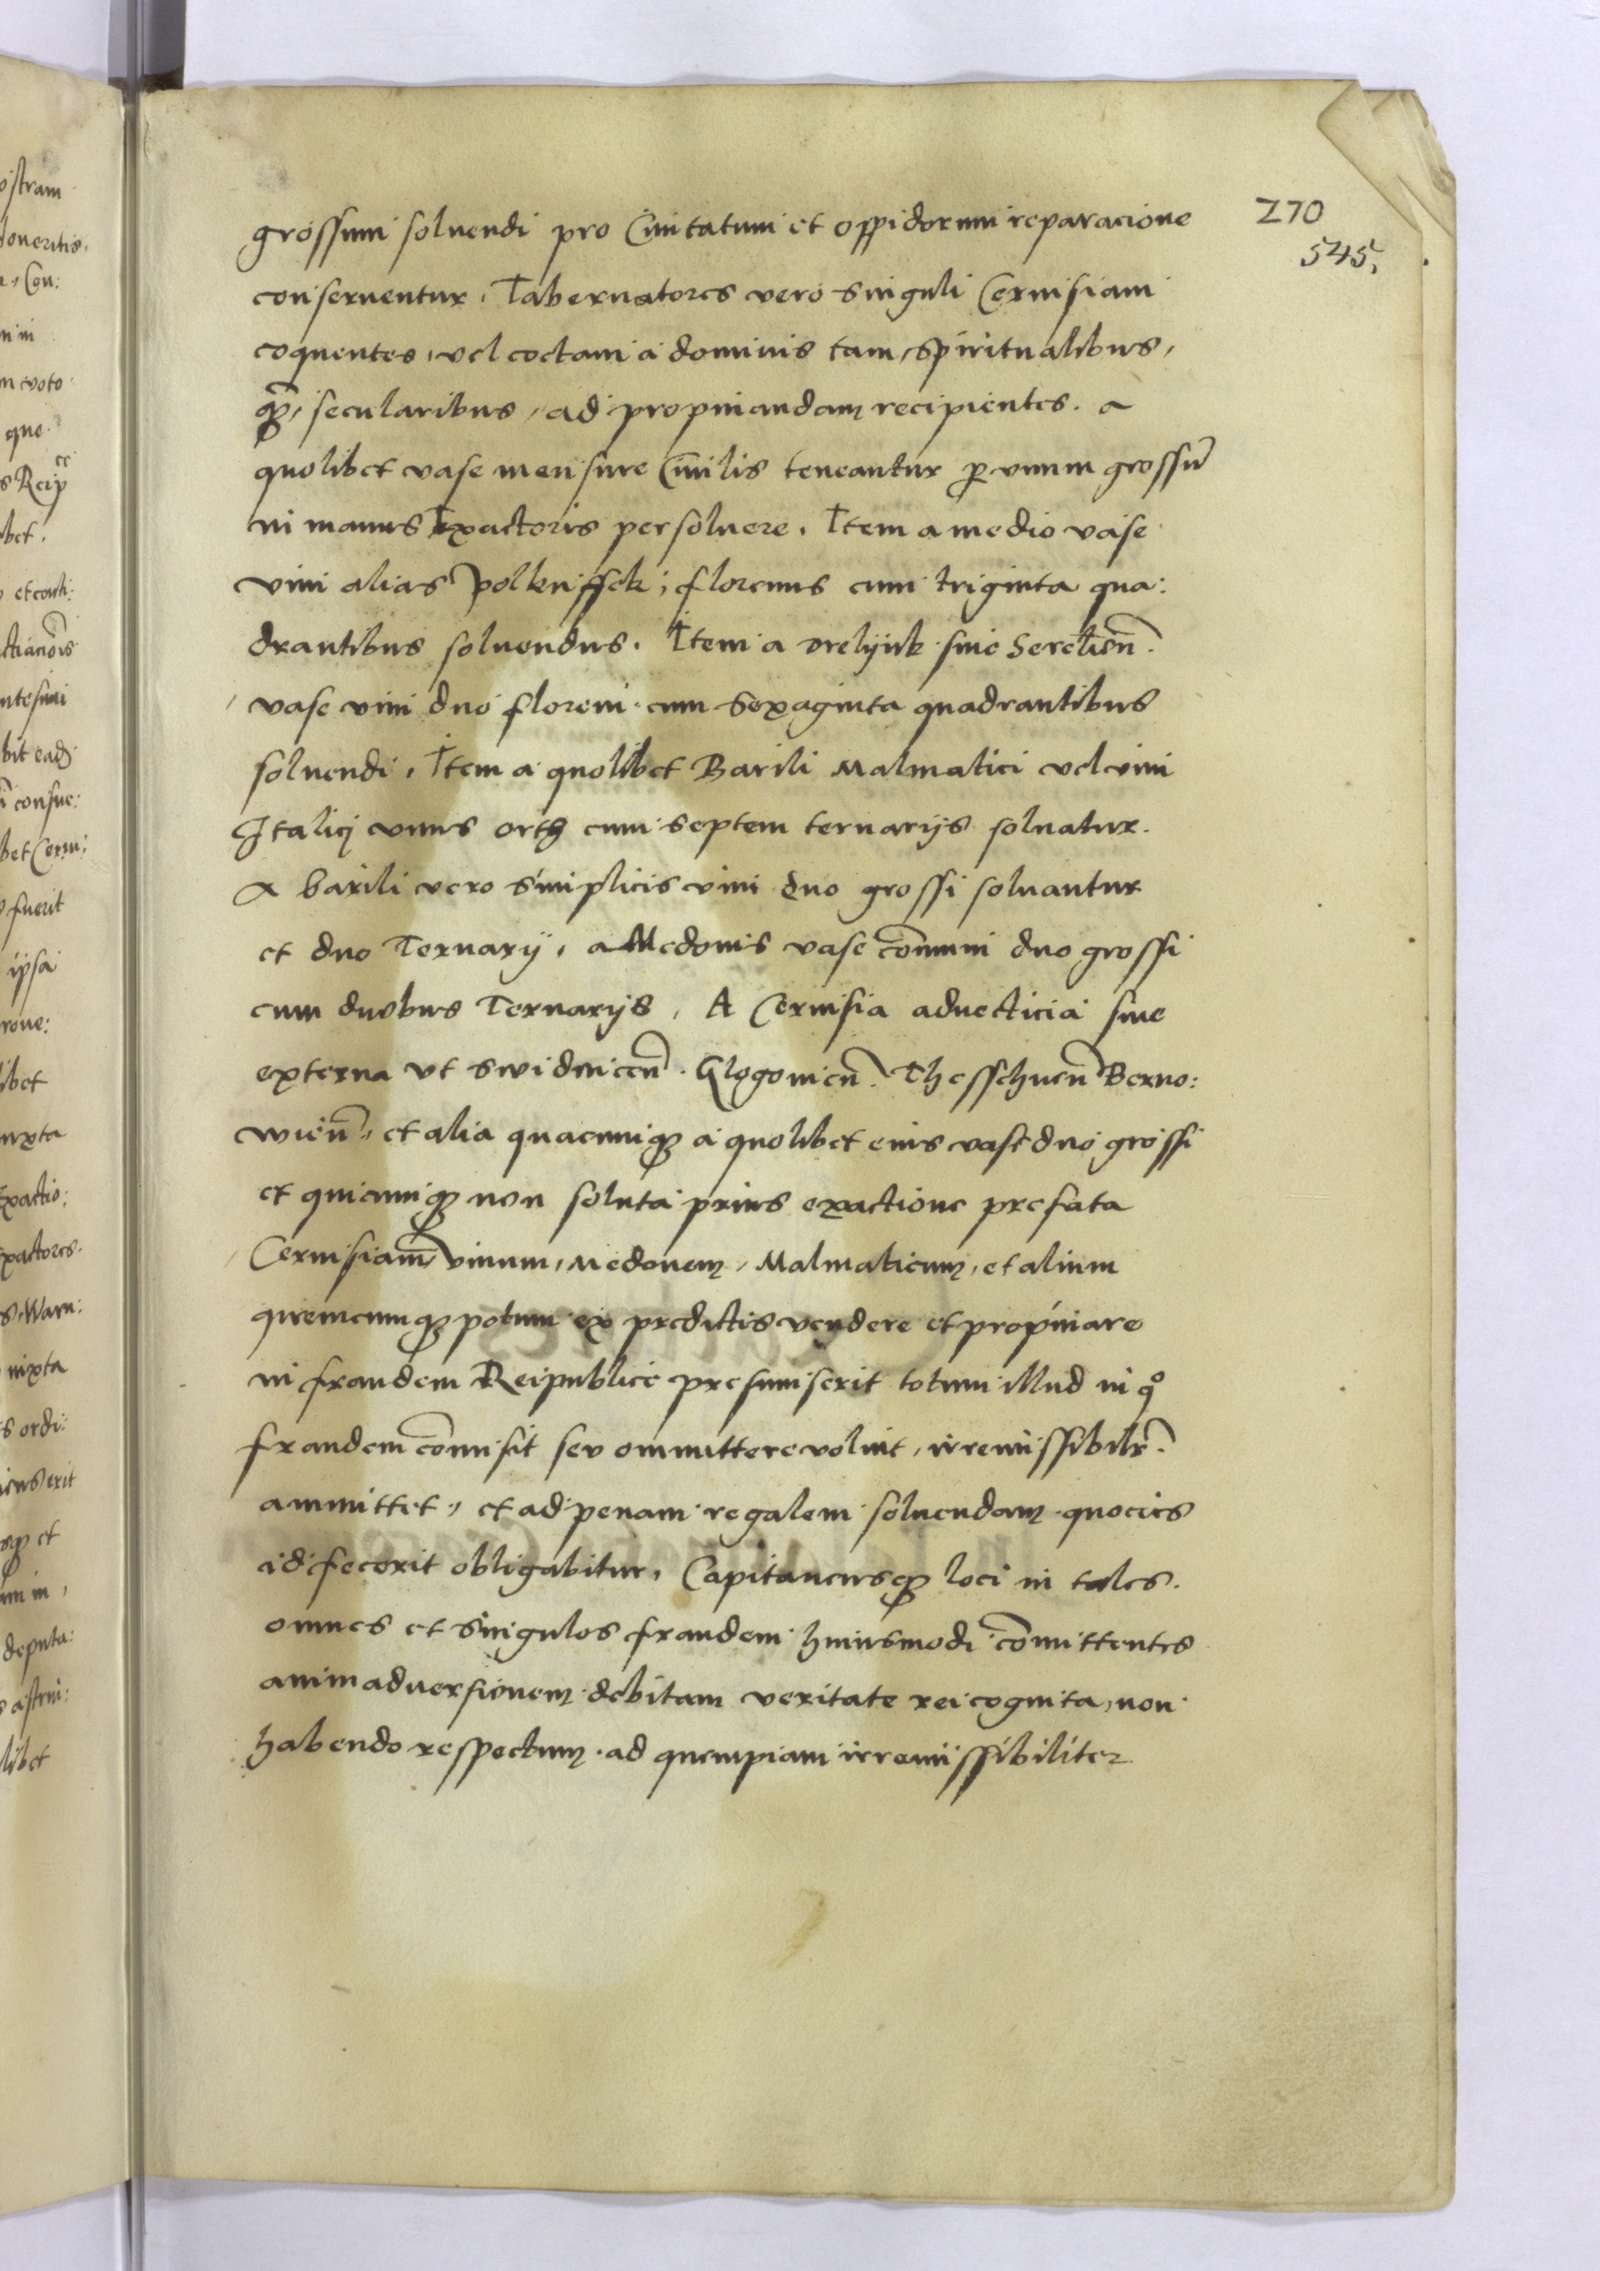 270
545.
grossum soluendi pro Ciuitatum et oppidorum reparacione
conseruentur. Tabernatores vero singuli Ceruisiam
coquentes, vel coctam a dominis tam, spiritualibus,
q̄ȝ, secularibus, ad propinandam recipientes. a
quolibet vase mensure Ciuilis teneantur ꝑ vnum grossū
in manus Exactoris persoluere. Item a medio vase
vini alias polkuffek, florenus cum triginta qua:
drantibus soluendus. Item a drelynk siue Seretien̄.
vase vini duo floreni cum sexaginta quadrantibus
soluendi. Item a quolibet Barili Malmatici vel vini
Italici vnus orth cum septem ternarijs soluatur.
A barili vero simplicis vini duo grossi soluantur
et duo Ternarij, a Medonis vase com̄uni duo grossi
cum duobus Ternarijs, A Ceruisia aduecticia siue
externa vt swidnicen̄. Glogouien̄. Thesschnen̄ Berno:
wien̄., et alia quacunqȝ a quolibet eius vase duo grossi
et quicunqȝ non soluta prius exactione prefata
Ceruisiam̄, vinum, Medonem, Malmaticum, et alium
quemcumqȝ potum ex predictis vendere et propinare
in fraudem Reipublice presumserit totum illud in qͦ
fraudem com̄isit seu ommittere voluit, irremissibilr̄.
ammittet, et ad penam regalem soluendam quocies
id fecerit obligabitur, Capitaneusqȝ loci in tales.
omnes et singulos fraudem huiusmodi com̄ittentes
animaduersionem debitam veritate rei cognita, non
habendo respectum ad quempiam irremissibiliter